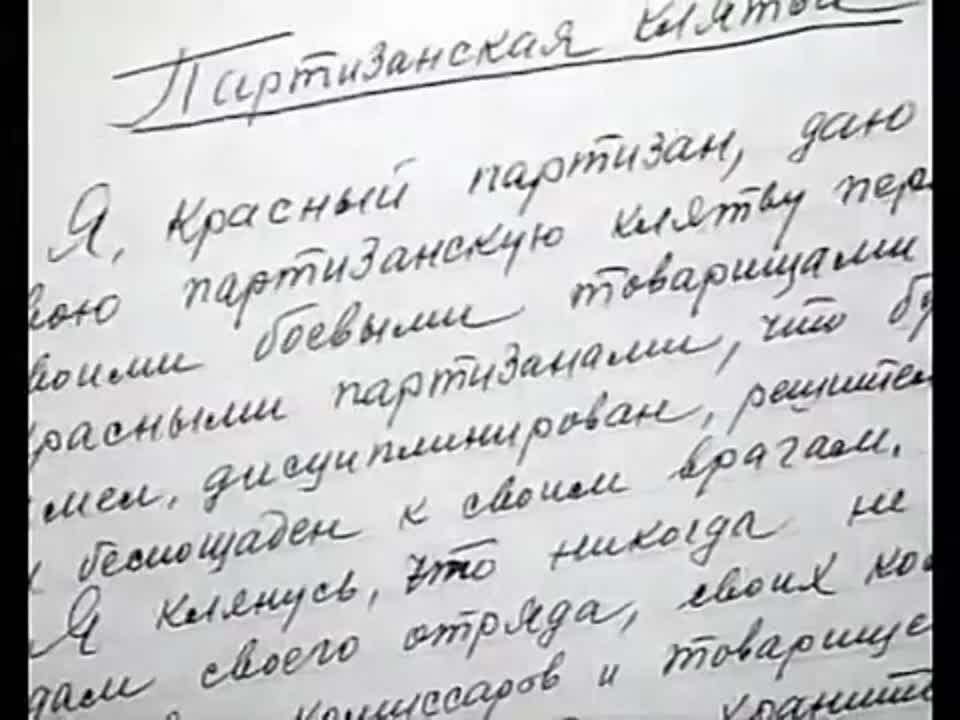 Партизанская клятва
Я, красный партизан, даю
вою партизанскую клятву пер
воими боевыми товарищами
расными партизанами, что бу
мел, дисциплинирован, решител
и беспощаден к своим врагам.
Я клянусь, что никогда не
дам своего отряда, своих ко
комиссаров и товарище
хранить